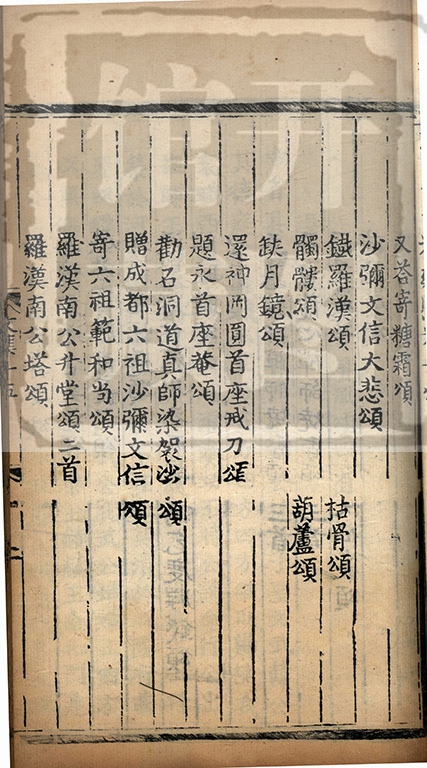 又荅寄糖霜頌
沙彌文信大悲頌
鐵羅漢頌 枯骨頌
髑髏頌 葫蘆頌
缺月鏡頌
還神岡圓首座戒刀頌
題永首座菴頌
勸石洞道真師染袈沙頌
贈成都六祖沙彌文信頌
寄六祖範和尚頌
羅漢南公升堂頌二首
羅漢南公塔頌